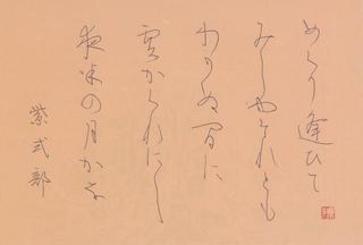 めくり逢ひて
みしやそれとも
わかぬ間に
雲かくれにし
夜半の月かな
紫式部